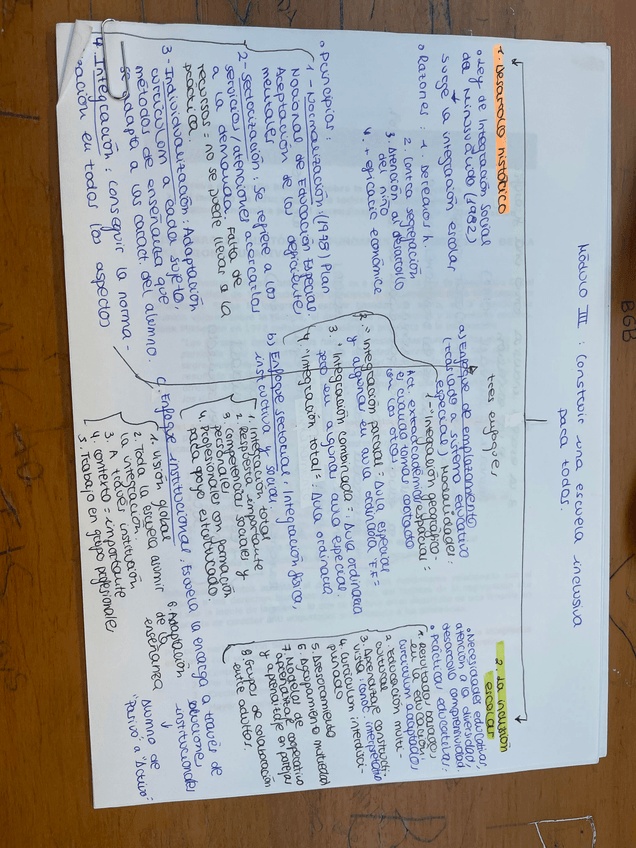 Módulo III : Construir una escuela inclusiva
para todos.
1. Desarrollo histórico
• Ley de Integración Social
de Minusválido (1982)
Surge la integración escolar
• Razones : 1. Derechos h.
2. Contra segregación
3. Atención al desarrollo
del niño
4. + eficacia económica
• Principios :
1 - Normalización : (1978) Plan
Nacional de Educación Especial.
Aceptación de los deficientes
mentales
2 - Sectorización : Se refiere a los
servicios / atenciones acercarlos
a la demanda. Falta de
recursos = no se puede llevar a la
práctica
3 - Individualización : Adaptación
currículum a cada sujeto,
métodos de enseñanza que
se adapta a las caract. del alumno.
4. Integración : conseguir la norma-
ización en todos los aspectos
tres enfoques
a) Enfoque de emplazamiento
(traslado a sistema educativo
especial) Modalidades :
1- "Integración geográfico-
espacial" =
Act. extraacadémicas
contacto
con los otros.
2. "Integración parcial" = Aula especial
y algunas en aula ordinaria
3. "Integración combinada" = Aula ordinaria
pero en algunas aula especial.
4. "Integración total" = Aula ordinaria
b) Enfoque sectorial, Integración física,
instructiva y social.
1. Integración total
2. Respuesta importante
3. Competencias sociales y
personales
4. Profesionales con formación
para apoyo estructurado.
c. Enfoque institucional, Escuela la encarga a través de
soluciones
institucionales
1. Visión global
2. Toda la escuela asumir
la integración.
3. A través institución
4. Contexto = importante
5. Trabajo en grupo profesionales
6. Adaptación
de la
enseñanza
Alumno de
"Pasivo a "Activo"
2. La inclusión
escolar
• Necesidades educativas,
atención a la diversidad,
desarrollo comprensividad.
• Prácticas educativas.
1. Resultados basados
en la educación y
currículum adaptados
2. Educación multi-
cultural
3. Aprendizaje constructi-
vista (const. interpretación
4. Currículum interdisci-
plinado
5. Asesoramiento
6. Agrupamiento multiedad
7. Modelos de cooperativo
aprendizaje
y aprendizaje en parejas
8. Grupos de colaboración
entre adultos.
BGB